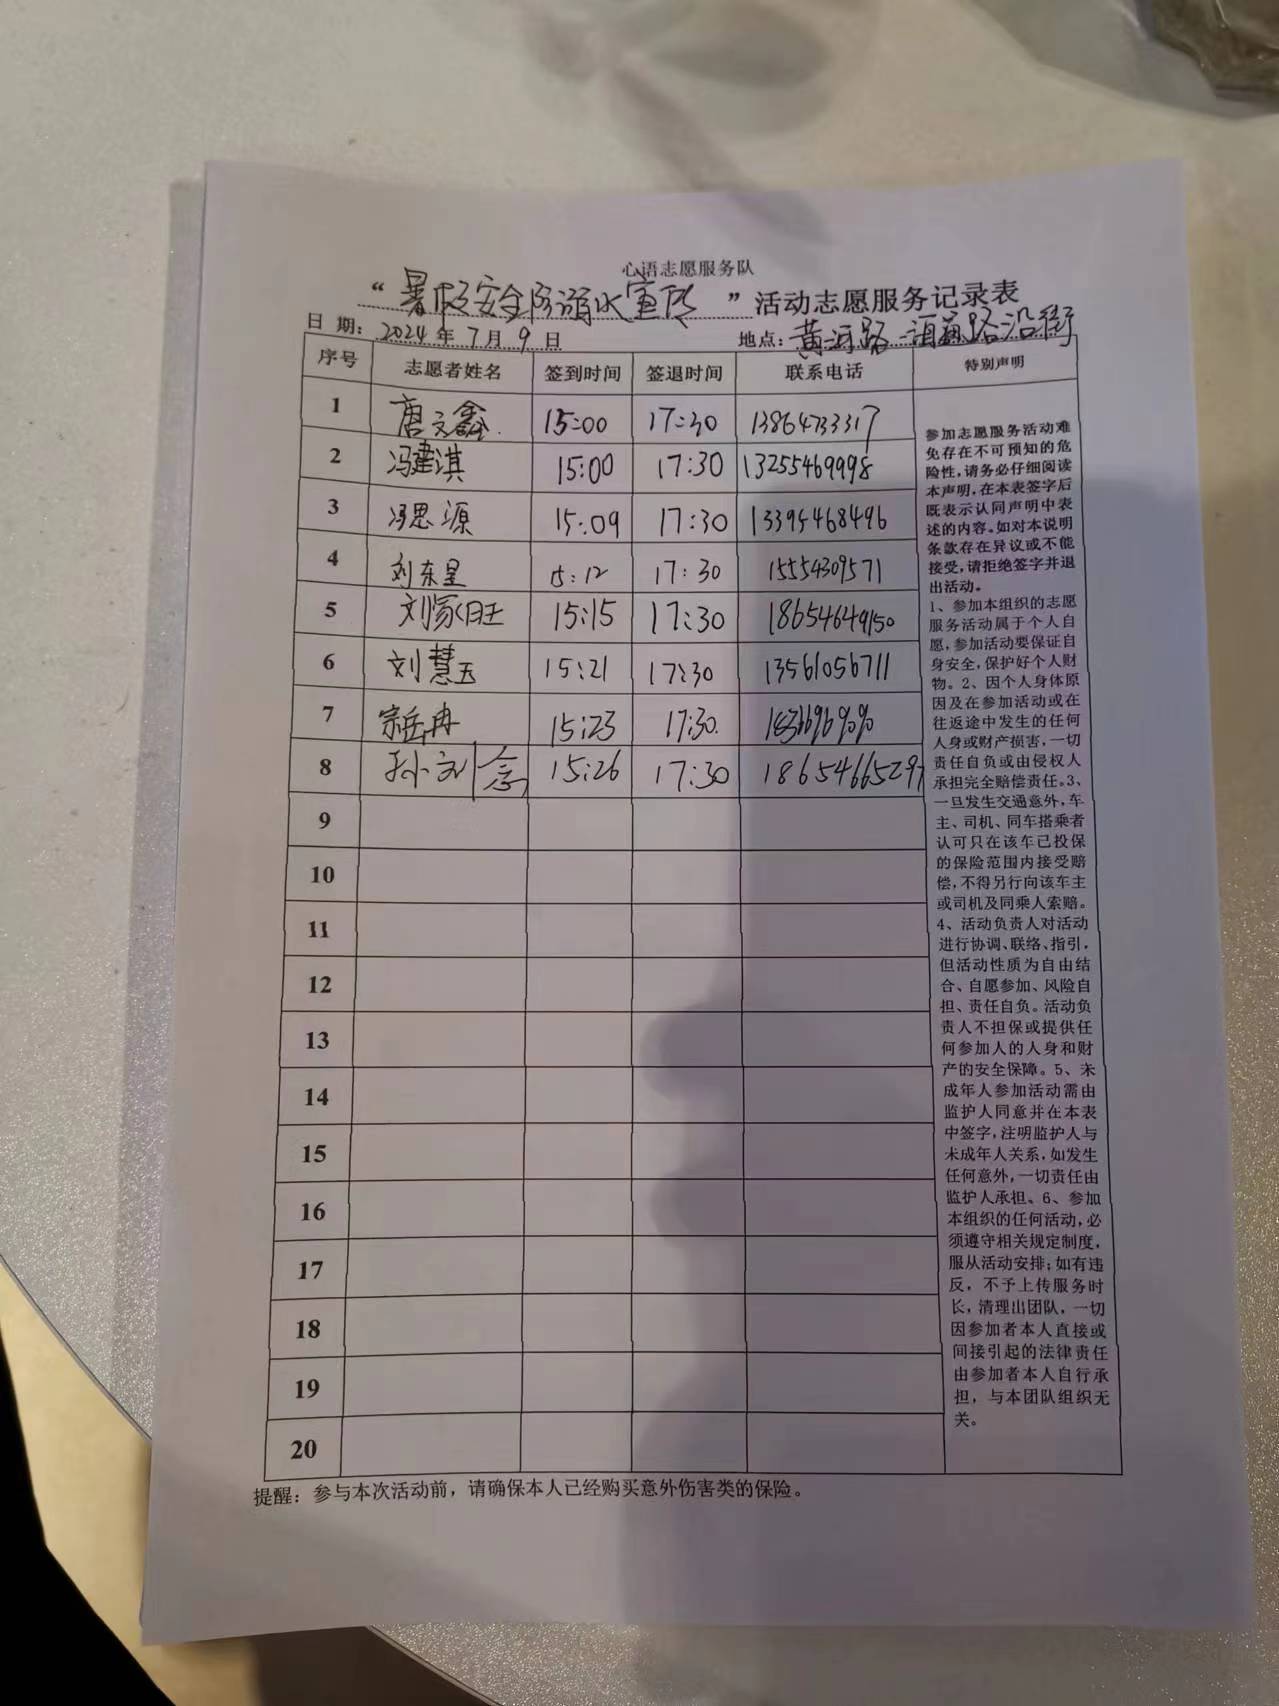 心语志愿服务队
“暑假安全防溺水宣传”活动志愿服务记录表
日 期：2024年7月9日 地点：黄河路 路沿街
序号 志愿者姓名 签到时间 签退时间 联系电话 特别声明
1 唐文鑫 15:00 17:30 13864733317
2 冯建淇 15:00 17:30 13255469998
3 冯思源 15:09 17:30 13395468496
4 刘东星 15:12 17:30 15554309571
5 刘家旺 15:15 17:30 18654649150
6 刘慧玉 15:21 17:30 13561056711
7 宗岳冉 15:23 17:30.
8 孙 15:26 17:30
9
10
11
12
13
14
15
16
17
18
19
20
参加志愿服务活动难
免存在不可预知的危
险性，请务必仔细阅读
本声明，在本表签字后
既表示认同声明中表
述的内容。如对本说明
条款存在异议或不能
接受，请拒绝签字并退
出活动。
1、参加本组织的志愿
服务活动属于个人自
愿，参加活动要保证自
身安全，保护好个人财
物。2、因个人身体原
因及在参加活动或在
往返途中发生的任何
人身或财产损害，一切
责任自负或由侵权人
承担完全赔偿责任。3、
一旦发生交通意外，车
主、司机、同车搭乘者
认可只在该车已投保
的保险范围内接受赔
偿，不得另行向该车主
或司机及同乘人索赔。
4、活动负责人对活动
进行协调、联络、指引，
但活动性质为自由结
合、自愿参加、风险自
担、责任自负。活动负
责人不担保或提供任
何参加人的人身和财
产的安全保障。5、未
成年人参加活动需由
监护人同意并在本表
中签字，注明监护人与
未成年人关系，如发生
任何意外，一切责任由
监护人承担。6、参加
本组织的任何活动，必
须遵守相关规定制度，
服从活动安排；如有违
反，不予上传服务时
长，清理出团队，一切
因参加者本人直接或
间接引起的法律责任
由参加者本人自行承
担，与本团队组织无
关。
提醒：参与本次活动前，请确保本人已经购买意外伤害类的保险。